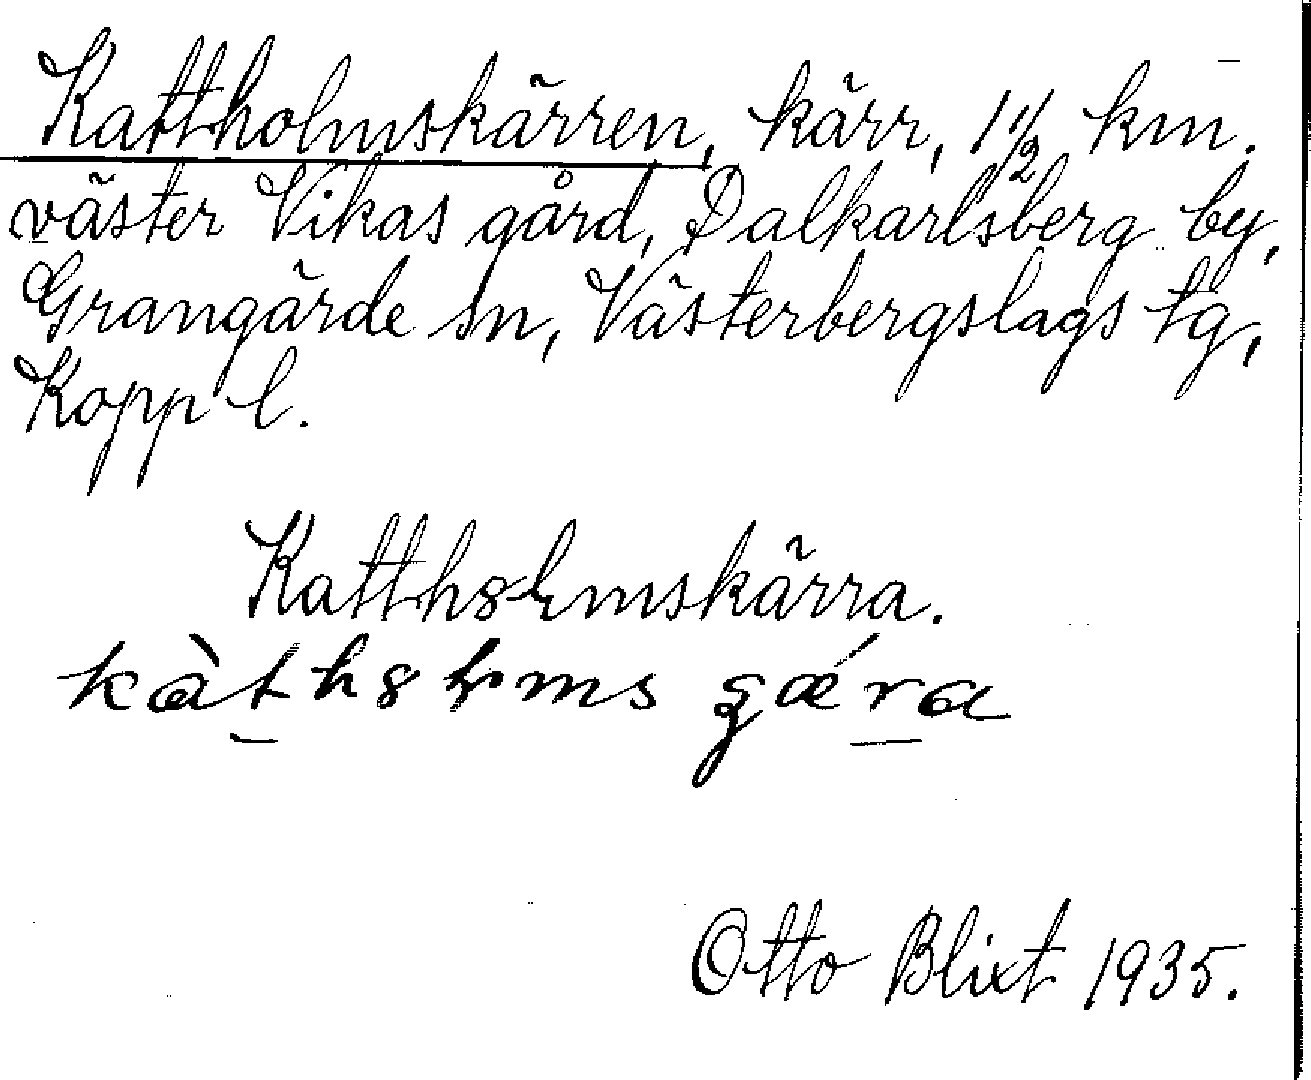 Kattholmskärren, kärr, 1 1/2 km.
väster Vikas gård, Dalkarlsberg by,
Grangärde sn, Västerbergslags tg,
Kopp l.
Katthslmskärra.
Otto Blixt 1935.